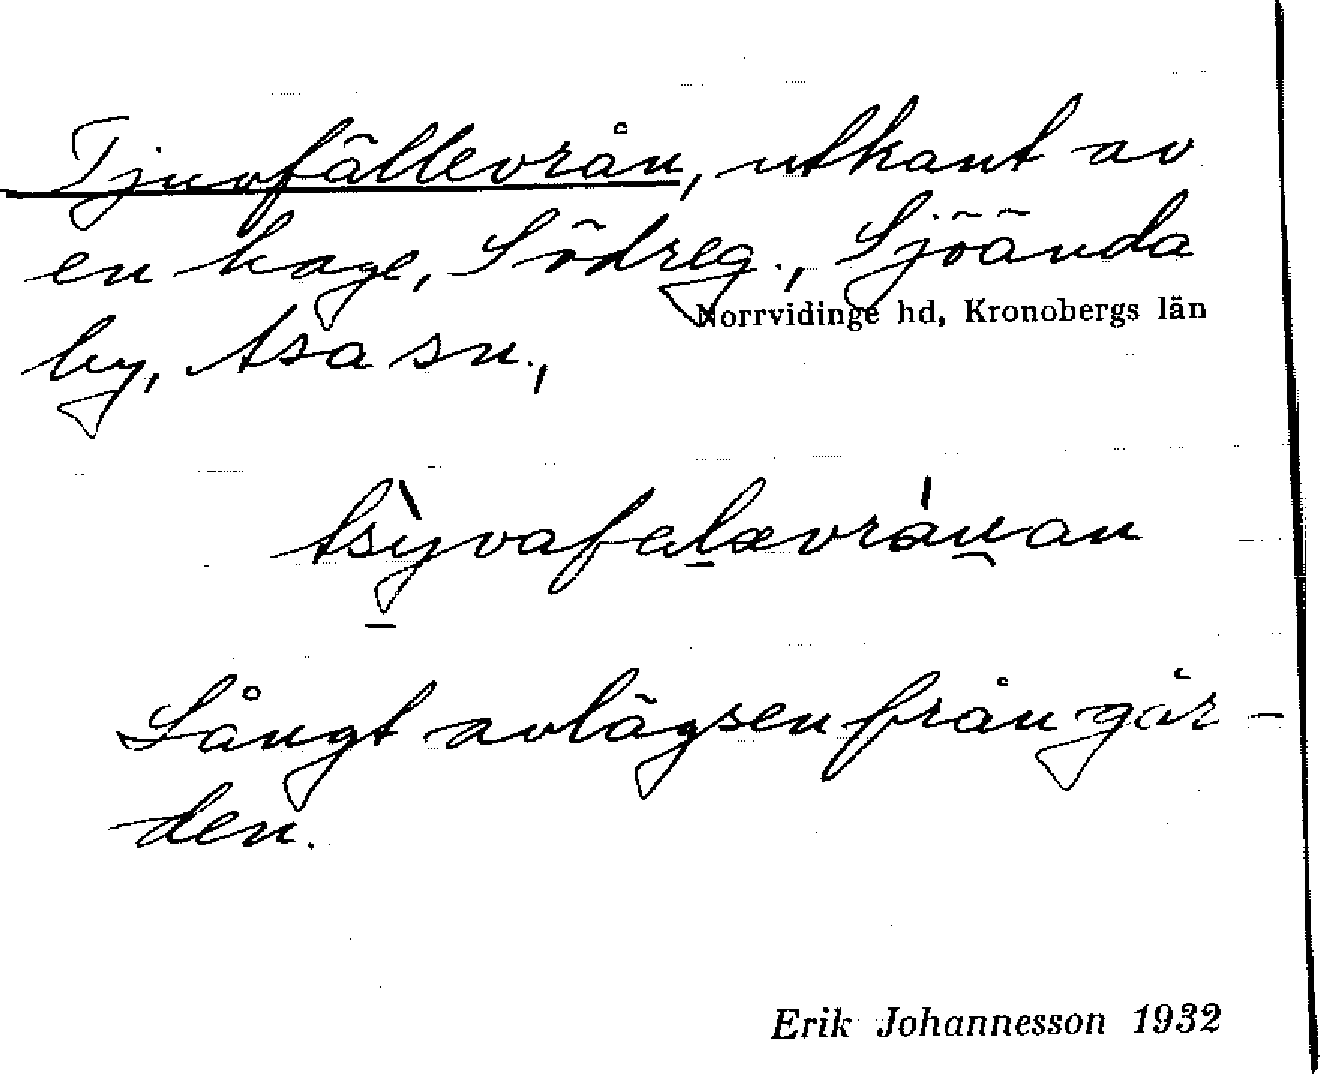 Tjuvfällevrån, utkant av
en hage, Södreg., Sjöända
Norrvidinge hd, Kronobergs län
by, Asa sn.,
Långt avlägsen från går-
den.
Erik Johannesson 1932